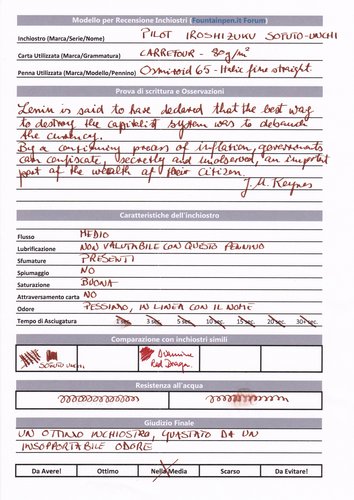 Modello per Recensione Inchiostri (Fountainpen.it Forum)
Inchiostro (Marca/Serie/Nome) PILOT IROSHIZUKU SOTUTO-UNCHI
Carta Utilizzata (Marca/Grammatura) CARREFOUR - 80g/m²
Penna Utilizzata (Marca/Modello/Pennino) Osmiroid 65 - Italic fine straight
Prova di scrittura e Osservazioni
Lenin is said to have declared that the best way
to destroy the capitalist system was to debauch
the currency.
By a continuing process of inflation, governments
can confiscate, secretly and unobserved, an important
part of the wealth of their citizen.
J.M. Keynes
Caratteristiche dell'inchiostro
Flusso MEDIO
Lubrificazione NON VALUTABILE CON QUESTO PENNINO
Sfumature PRESENTI
Spiumaggio NO
Saturazione BUONA
Attraversamento carta NO
Odore PESSIMO, IN LINEA CON IL NOME
Tempo di Asciugatura 1 sec. 3 sec. 5 sec. 10 sec. 15 sec. 20 sec. 30+ sec.
Comparazione con inchiostri simili
SOTUTO UNCHI Diamine
Red Dragon
Resistenza all'acqua
Giudizio Finale
UN OTTIMO INCHIOSTRO, GUASTATO DA UN
INSOPPORTABILE ODORE
Da Avere! Ottimo Nella Media Scarso Da Evitare!